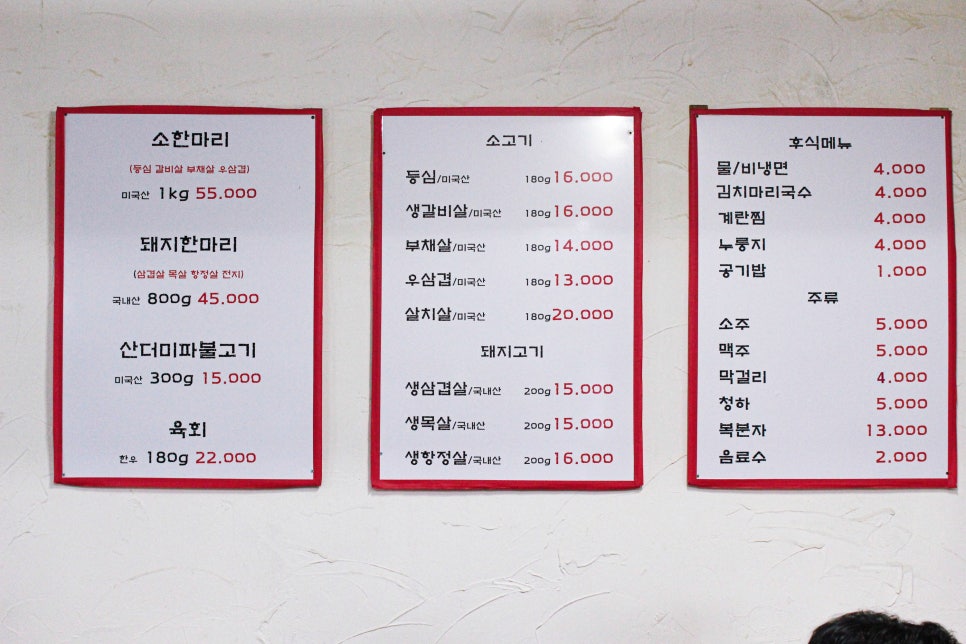 소한마리
(등심 갈비살 부채살 우삼겹)
미국산 1kg 55.000
돼지한마리
(삼겹살 목살 항정살 전지)
국내산 800g 45.000
산더미파불고기
미국산 300g 15.000
육회
한우 180g 22.000
소고기
등심/미국산 180g 16.000
생갈비살/미국산 180g 16.000
부채살/미국산 180g 14.000
우삼겹/미국산 180g 13.000
살치살/미국산 180g 20.000
돼지고기
생삼겹살/국내산 200g 15.000
생목살/국내산 200g 15.000
생항정살/국내산 200g 16.000
후식메뉴
물/비냉면 4.000
김치마리국수 4.000
계란찜 4.000
누룽지 4.000
공기밥 1.000
주류
소주 5.000
맥주 5.000
막걸리 4.000
청하 5.000
복분자 13.000
음료수 2.000